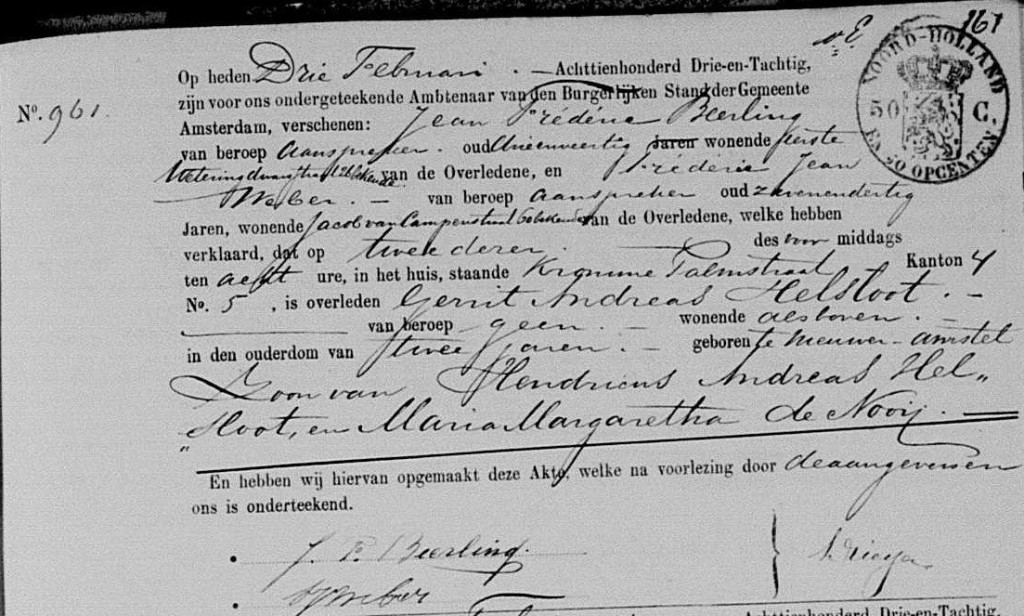 161
No. 961.
Op heden Drie Februari . — Achttienhonderd Drie-en-Tachtig,
zijn voor ons ondergeteekende Ambtenaar van den Burgerlijken Stand der Gemeente
Amsterdam, verschenen: Jean Frédéric Beerling
van beroep Aanspreker . oud drieenveertig jaren wonende eerste
Weteringdwarsstraat bekende van de Overledene, en Frédéric Jean
Weber . — van beroep aanspreker oud zevenendertig
Jaren, wonende Jacob van Campenstraat 60 bekende van de Overledene, welke hebben
verklaard, dat op twee dezer . des voor middags
ten acht ure, in het huis, staande Kromme Palmstraat Kanton 4
No. 5 , is overleden Gerrit Andreas Helsloot . —
van beroep — geen . — wonende als boven . —
in den ouderdom van twee jaren . — geboren te Nieuwer-Amstel
Zoon van Hendricus Andreas Hel„
„sloot, en Maria Margaretha de Nooij . —
En hebben wij hiervan opgemaakt deze Akte, welke na voorlezing door de aangevers en
ons is onderteekend.
J. F. Beerling.
Weber
Achttienhonderd Drie-en-Tachtig,
NOORD-HOLLAND
50 C.
EN 20 OPCENTEN